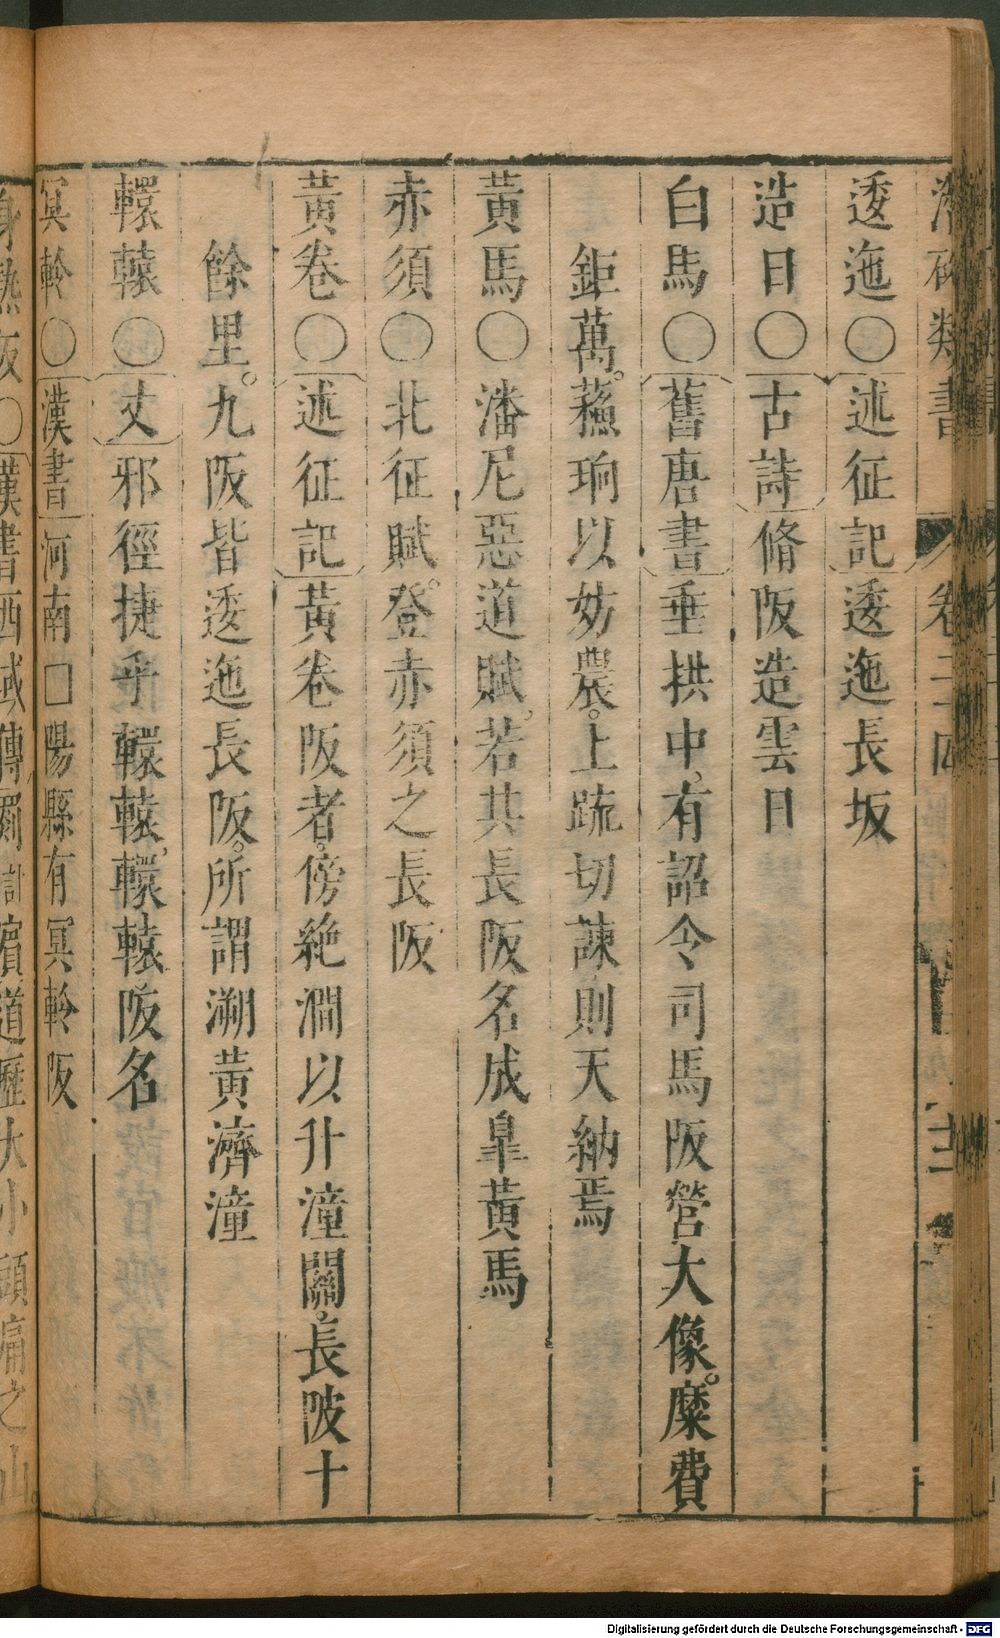 潛確類書 卷二四
逶迤○述征記逶迤長坂
造日○古詩脩阪造雲日
白馬○舊唐書垂拱中。有詔令司馬阪營大像。糜費
鉅萬。蘓珦以妨農。上疏切諫則天納焉
黃馬○潘尼惡道賦。若共長阪名成皐黃馬
赤須○北征賦。登赤須之長阪
黃卷○述征記黃卷阪者。傍絶澗以升潼關。長陂十
餘里。九阪皆逶迤長阪。所謂溯黃濟潼
轘轅○文邪徑捷乎轘轅。轘轅阪名
冥軨○漢書河南□陽縣有冥軨阪
身熱阪○漢書西域傳罽賓道歷大小頭痛之山。
Digitalisierung gefördert durch die Deutsche Forschungsgemeinschaft - DFG